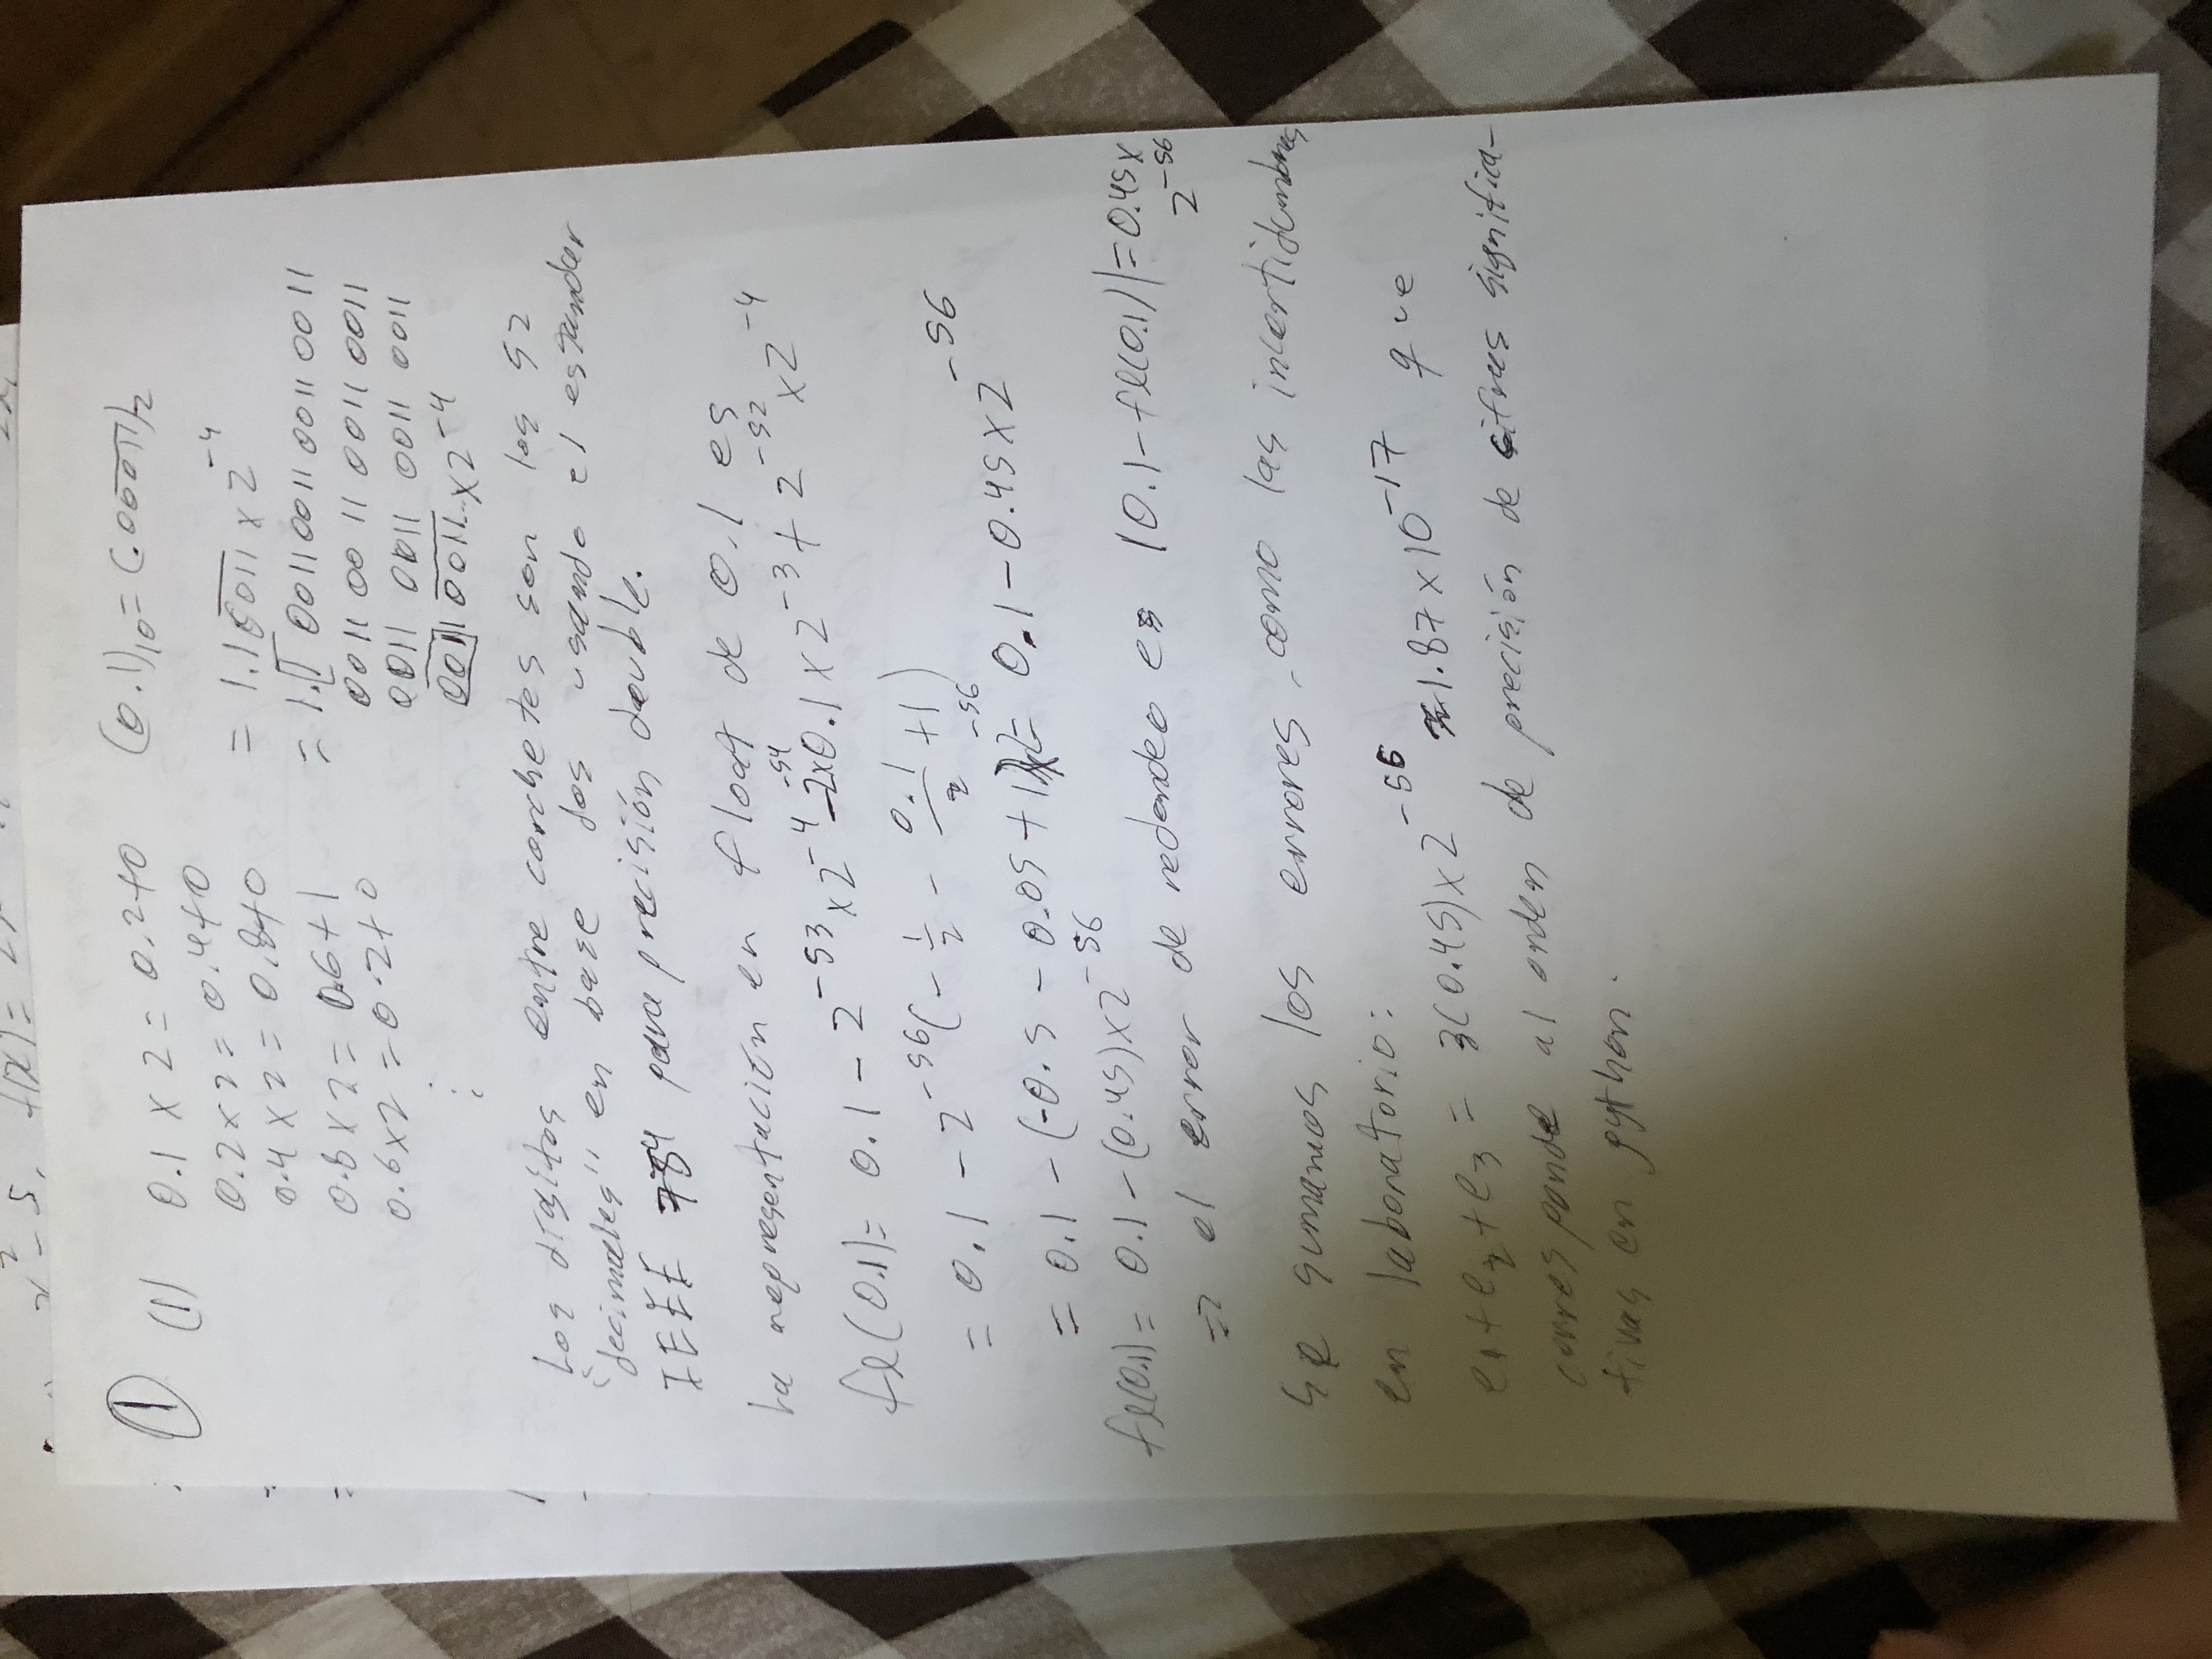 x² - 5, f(x) =
① (1) 0.1 x 2 = 0.2+0 (0.1)₁₀ = (.00̅0̅1̅1̅)₂
0.2 x 2 = 0.4+0
= 1.10̅0̅1̅1̅ x 2⁻⁴
0.4 x 2 = 0.8+0
= 1.[1 0011 0011 0011 0011
0.8 x 2 = 0.6+1
0011 0011 0011 0011
0.6 x 2 = 0.2+0
0011 0011 0011 0011
001]1 0011... x 2⁻⁴
Los digitos entre corchetes son los 52
"decimales" en base dos usando el estandar
IEEE 784 para precisión double.
La representación en float de 0.1 es
fl(0.1) = 0.1 - 2⁻⁵³ x 2⁻⁴ - 2⁻⁵⁴ x 0.1 x 2⁻³ + 2⁻⁵² x 2⁻⁴
= 0.1 - 2⁻⁵⁶(- 1/2 - 0.1/2 + 1)
= 0.1 - (-0.5 - 0.05 + 1) x 2⁻⁵⁶ = 0.1 - 0.45 x 2⁻⁵⁶
fl(0.1) = 0.1 - (0.45) x 2⁻⁵⁶
=> el error de redondeo es |0.1 - fl(0.1)| = 0.45 x
2⁻⁵⁶
Se sumamos los errores, como las incertidumbres
en laboratorio:
e₁ + e₂ + e₃ = 3(0.45) x 2⁻⁵⁶ ≈ 1.87 x 10⁻¹⁷ que
corresponde al orden de precisión de cifras significa-
tivas en python.